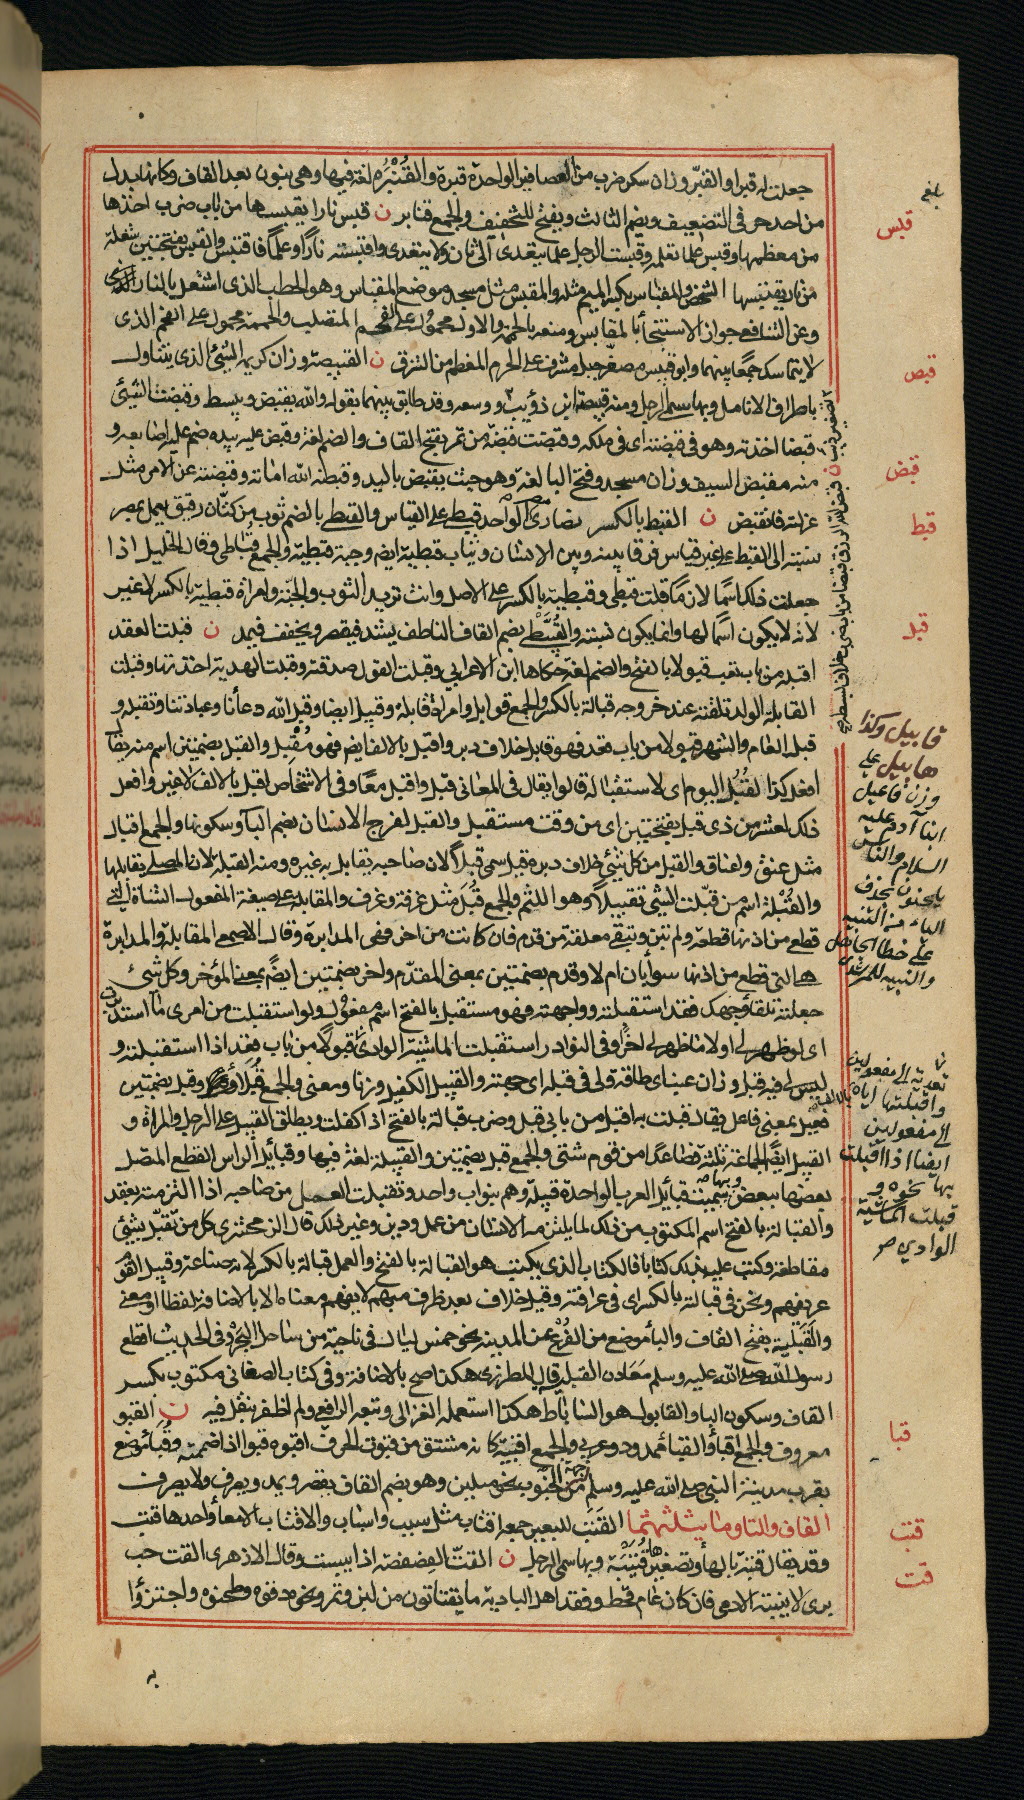 جعلت له قبرا والقبّر وزان سكر ضرب من العصافير الواحدة قبرة والقُنْبُرة لغة فيها وهي بنون بعد القاف وكانها بدل
من احد حرفي التضعيف ويضم الثالث ويفتح للتخفيف والجمع قنابر ن قبس نارا يقبسها من باب ضرب اخذها
من معظمها وقبس علما تعلمه وقبست الرجل علما يتعدى الى ثان ولا يتعدى واقتبسته نارا وعلما فاقتبس والقبس بفتحتين شعلة
من نار يقتبسها الشخص والمقباس بكسر الميم مثله والمقبس مثل مسجد موضع المقباس وهو الحطب الذي اشتعل بالنار
وعن الشافعي جواز الاستنجاء بالمقابس ومنعه بالحممة والاول محمول على الفحم المتصلب والحممة محمول على الفحم الذي
لا يتماسك جمعا بينهما وابو قبيس مصغر جبل مشرف على الحرم المعظم من الشرق ن القبيصة وزان كريمة الشيء الذي يتناول
باطراف الانامل وبها سمى الرجل ومنه قبيصة ابن ذؤيب ووسعه وقد طابق بينهما بقوله والله يقبض ويبسط وقبضت الشيء
قبضا اخذته وهو في قبضته اى في ملكه وقبضت قبضة من تمر بفتح القاف والضم لغة وقبض عليه بيده ضم عليه اصابعه و
منه مقبض السيف وزان مسجد وفتح الباء لغة وهو حيث يقبض باليد وقبضه الله اماته وقبضته عن الامر مثل
عزلته فانقبض ن القبط بالكسر نصارى مصر الواحد قبطي على القياس والقبطي بالضم ثوب من كتان رقيق يعمل بمصر
نسبة الى القبط على غير قياس فرقا بينه وبين الانسان وثياب قبطية ايضا وجبة قبطية والجمع قباطي وقال الخليل اذا
جعلت ذلك اسما لازما قلت قبطي وقبطية بالكسر على الاصل وانت تريد الثوب والجبة وامراة قبطية بالكسر لا غير
لانه لا يكون اسما لها وانما يكون نسبة والقُبَّيْطى بضم القاف الناطف يشدد فيقصر ويخفف فيمد ن قبلت العقد
اقبله من باب تعب قبولا بالفتح والضم لغة حكاها ابن الاعرابي وقبلت القول صدقته وقبلت الهدية اخذتها وقبلت
القابلة الولد تلقته عند خروجه قبالة بالكسر والجمع قوابل وامراة قابلة وقبيل ايضا وقبل الله دعانا وعبادتنا وتقبله و
قبل العام والشهر قبولا من باب قعد فهو قابل خلاف دبر واقبل بالالف ايضا فهو مُقبِل والقبل بضمتين اسم منه يقال
افعل كذا لقُبُل اليوم اى لاستقباله قالوا يقال في المعاني قبل واقبل معا وفي الاشخاص اقبل بالالف لا غير وافعل
ذلك لعشر من ذى قبل بفتحتين اى من وقت مستقبل والقبل لفرج الانسان بضم الباء وسكونها والجمع اقبال
مثل عنق واعناق والقبل من كل شيء خلاف دبره قيل سمي قبلا لان صاحبه يقابل به غيره ومنه القبلة لان المصلي يقابلها
والقُبْلة اسم من قبّلت الشيء تقبيلا وهو اللثم والجمع قُبَل مثل غرفة وغرف والمقابلة على صيغة المفعول الشاة التي
قطع من اذنها قطعة ولم تبن وتبقى معلقة من قدم فان كانت من اخر فهي المدابرة وقال الاصمعي المقابلة والمدابرة
هي التي قطع من اذنها سواء بان ام لا وقدم بضمتين بمعنى المقدم واخر بضمتين ايضا بمعنى المؤخر وكل شيء
جعلته تلقاء وجهك فقد استقبلته وواجهته فهو مستقبل بالفتح اسم مفعول ولو استقبلت من امري ما استدبرت
اى لو ظهر لي اولا ما ظهر لي اخرا وفي النوادر استقبلت الماشية الوادي قبولا من باب قعد اذا استقبلته و
ليس لي فيه قبل وزان عنب اى طاقة ولي في قبله اى جهته والقبيل الكفيل وزنا ومعنى والجمع قُبلاء وقبل بضمتين
فعيل بمعنى فاعل يقال قبلت به اقبل من بابي قتل وضرب قبالة بالفتح اذا كفلت ويطلق القبيل على الرجل والمراة و
القبيل ايضا الجماعة ثلثة فصاعدا من قوم شتى والجمع قبل بضمتين والقبيلة لغة فيها وقبائل الراس القطع المتصل
بعضها ببعض وبها سميت قبائل العرب الواحدة قبيلة وهم بنو اب واحد وتقبلت العمل من صاحبه اذا التزمته بعقد
والقبالة بالفتح اسم المكتوب من ذلك لما يلتزمه الانسان من عمل ودين وغير ذلك قال الزمخشري كل من تقبل بشيء
مقاطعة وكتب عليه بذلك كتابا فالكتاب الذي يكتب هو القبالة بالفتح والعمل قبالة بالكسر لانه صناعة وقبيل القوم
عريفهم ونحن في قبالة بالكسر اى في عرافته وقبل خلاف بعد ظرف مبهم لا يفهم معناه الا بالاضافة لفظا او معنى
والقَبَلية بفتح القاف والباء موضع من الفُرْع عن المدينة نحو خمس ليال في ناحية من ساحل البحر وفي الحديث اقطع
رسول الله صلى الله عليه وسلم معادن القبلية قال المطرزي هكذا صح بالاضافة وفي كتاب الصغاني مكتوب بكسر
القاف وسكون الباء والقابول هو الساباط هكذا استعمله الغزالي وتبعه الرافعي ولم اظفر بنقل فيه ن القبو
معروف والجمع اقباء والقباء ممدود عربي والجمع اقبية كانه مشتق من قبوت الحرف اقبوه قبوا اذا ضممته وقُباء موضع
بقرب مدينة النبي صلى الله عليه وسلم من جهة الجنوب نحو ميلين وهو بضم القاف يقصر ويمد ويصرف ولا يصرف
القاف والتاء وما يثلثهما القَتَب للبعير جمعه اقتاب مثل سبب واسباب والاقتاب الامعاء واحدها قتب
وقد يقال قتبة بالهاء وتصغيرها قُتَيْبَة وبها سمى الرجل ن القتّ الفصفصة اذا يبست وقال الازهري القت حب
بري لا ينبته الادمي فان كان عام قحط وفقد اهل البادية ما يقتاتون من لبن وتمر ونحوه دقوه وطحنوه واجتزؤا
به
بلغ
قبس
قبص
قبض
قبط
قبل
قابيل وكذا
هابيل على
وزن فاعيل
ابنا آدم عليه
السلام والناس
يلحنون بحذف
الياء منه التنبيه
على خطا الخاطئ
تعدية الى مفعولين
واقبلتها اياه بالالف
الى مفعولين
ايضا اذا اقبلت
بها نحوه و
قبلت الماشية
الوادي صح
قبا
قتب
قت